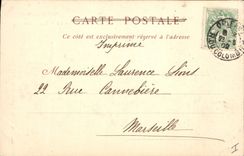 CARTE POSTALE
Ce côté est exclusivement réservé à l'adresse
Imprimé
Mademoiselle Laurence
22 Rue Cannebière
Marseille